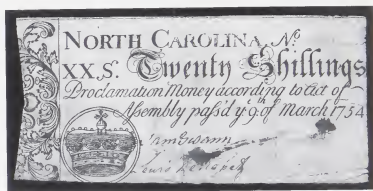 NORTH CAROLINA, No
XX.S. Twenty Shillings
Proclamation Money according to act of
Assembly pass'd ye 9th of March 1754